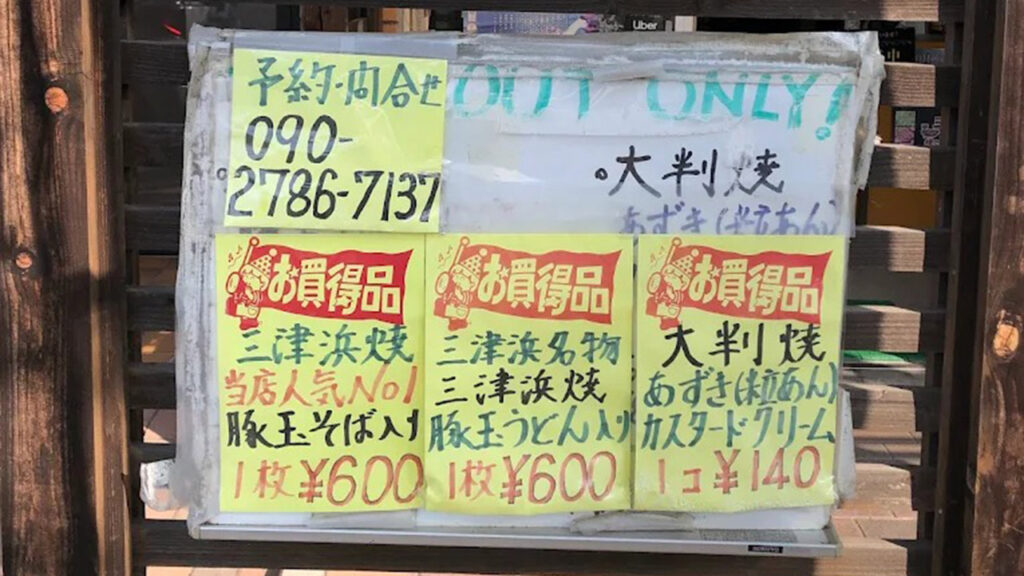 Uber
予約・問合せ
090-
2786-7137
OUT ONLY!
。大判焼
あずき(粒あん)
お買得品
三津浜焼
当店人気No1
豚玉そば入り
1枚¥600
お買得品
三津浜名物
三津浜焼
豚玉うどん入り
1枚¥600
お買得品
大判焼
あずき(粒あん)
カスタードクリーム
1コ¥140